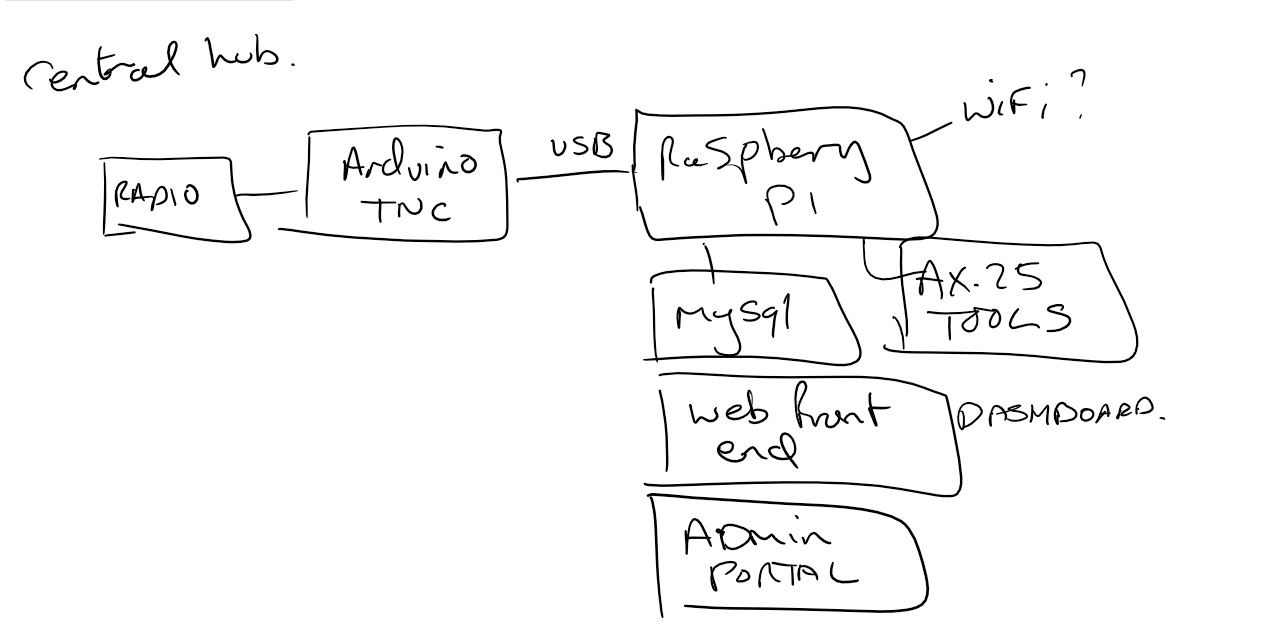 Central hub.
RADIO
Arduino
TNC
USB
Raspberry
Pi
WiFi?
MySql
AX.25
TOOLS
web front
end
DASHBOARD.
ADMin
PORTAL